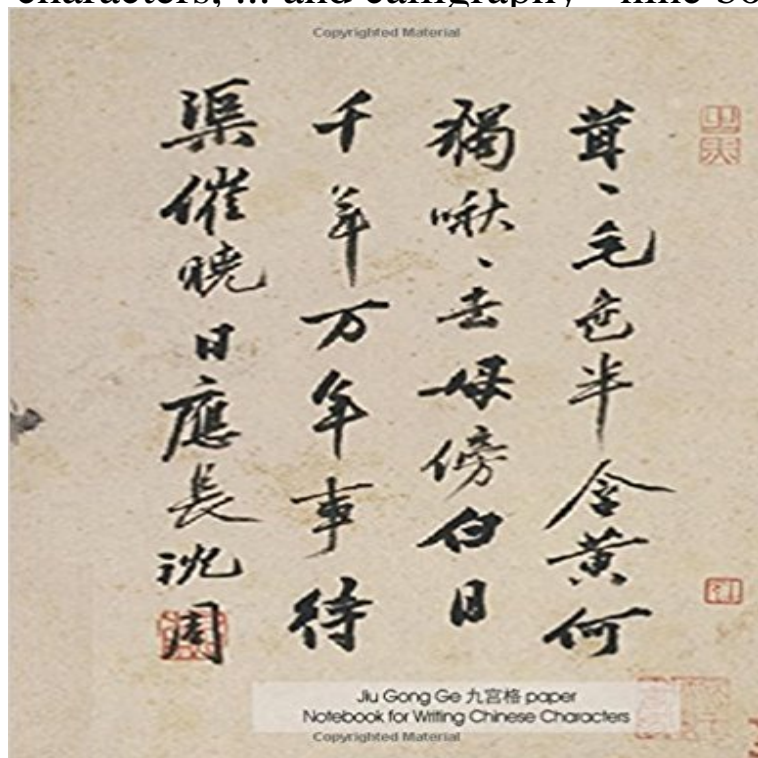 characters, ... and calligraphy - nine
Copyrighted Material
茸、毛色半含黃何
獨啾、去母傍白日
千年万年事待
渠催曉日應長沈周
Jiu Gong Ge 九宮格 paper
Notebook for Writing Chinese Characters
Copyrighted Material